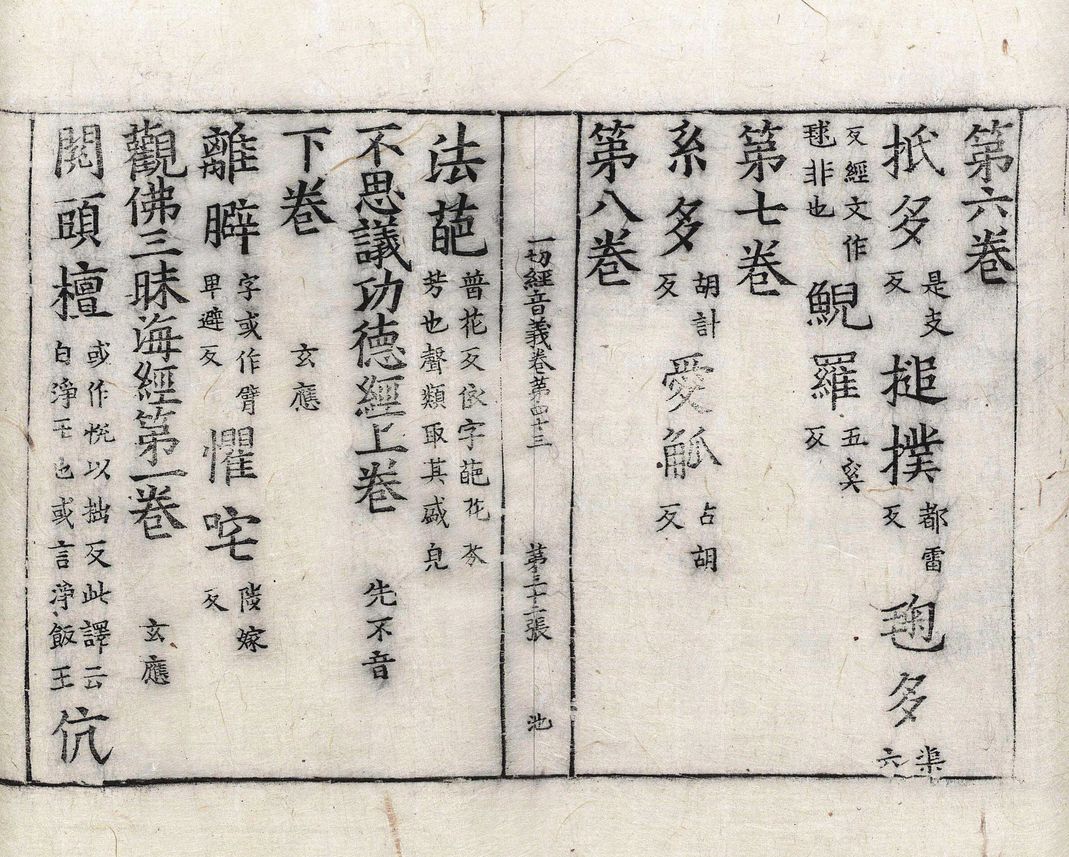 第六卷
抵多是支反㨃撲都雷反毱多渠六
反經文作毬非也鯢羅五奚反
第七卷
系多胡計反愛觚占胡反
第八卷
一切經音義卷第四十三 第三十二張 池
法葩普花反依字葩花芬芳也聲類取其盛皃
不思議功德經上卷 先不音
下卷 玄應
離臂字或作臂卑避反懼咤陟嫁反
觀佛三昧海經第一卷 玄應
閱頭檀或作悅以拙反此譯云白淨王也或言淨飯王伉